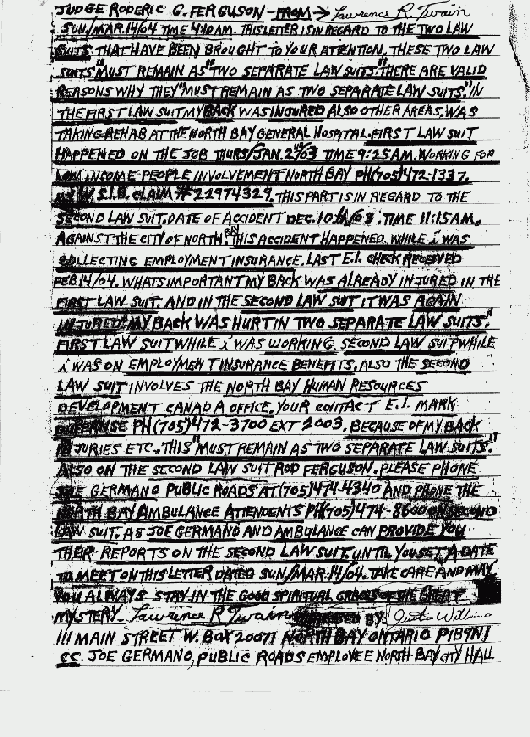 JUDGE RODERIC G. FERGUSON - FROM → Lawrence R. Twain
SUN/MAR.14/04 TIME 4:10AM. THIS LETTER IS IN REGARD TO THE TWO LAW
SUITS THAT HAVE BEEN BROUGHT TO YOUR ATTENTION. THESE TWO LAW
SUITS "MUST REMAIN AS "TWO SEPARATE LAW SUITS." THERE ARE VALID
REASONS WHY THEY "MUST REMAIN AS TWO SEPARATE LAW SUITS." IN
THE FIRST LAW SUIT MY BACK WAS INJURED ALSO OTHER AREAS, WAS
TAKING REHAB AT THE NORTH BAY GENERAL HOSPITAL. FIRST LAW SUIT
HAPPENED ON THE JOB THURS/JAN. 2/03 TIME 9:25AM. WORKING FOR
LOW INCOME PEOPLE INVOLVEMENT NORTH BAY PH(705)472-1337.
W.S.I.B. CLAIM # 22974329. THIS PART IS IN REGARD TO THE
SECOND LAW SUIT. DATE OF ACCIDENT DEC. 10/03. TIME 11:15AM.
AGAINST THE CITY OF NORTH BAY THIS ACCIDENT HAPPENED. WHILE i WAS
COLLECTING EMPLOYMENT INSURANCE. LAST E.I. CHECK RECEIVED
FEB 14/04. WHATS IMPORTANT MY BACK WAS ALREADY INJURED IN THE
FIRST LAW SUIT. AND IN THE SECOND LAW SUIT IT WAS AGAIN
INJURED. "MY BACK WAS HURT IN TWO SEPARATE LAW SUITS."
FIRST LAW SUIT WHILE i WAS WORKING. SECOND LAW SUIT WHILE
i WAS ON EMPLOYMENT INSURANCE BENEFITS. ALSO THE SECOND
LAW SUIT INVOLVES THE NORTH BAY HUMAN RESOURCES
DEVELOPMENT CANADA OFFICE. YOUR CONTACT E.I. MARK
PH(705)472-3700 EXT 2003. BECAUSE OF MY BACK
INJURIES ETC. THIS "MUST REMAIN AS TWO SEPARATE LAW SUITS."
ALSO ON THE SECOND LAW SUIT ROD FERGUSON. PLEASE PHONE
JOE GERMANO PUBLIC ROADS AT (705)474-4340 AND PHONE THE
NORTH BAY AMBULANCE ATTENDENTS PH(705)474-8600 ON SECOND
LAW SUIT. AS JOE GERMANO AND AMBULANCE CAN PROVIDE YOU
THER REPORTS ON THE SECOND LAW SUIT. UNTIL YOU SET A DATE
TO MEET ON THIS LETTER DATED SUN/MAR.14/04. TAKE CARE AND MAY
YOU ALWAYS STAY IN THE GOOD SPIRITUAL GRACES OF THE GREAT
MYSTERY. Lawrence R Twain BY
111 MAIN STREET W. BOX 20071 NORTH BAY ONTARIO P1B9N1
CC JOE GERMANO, PUBLIC ROADS EMPLOYEE NORTH BAY CITY HALL